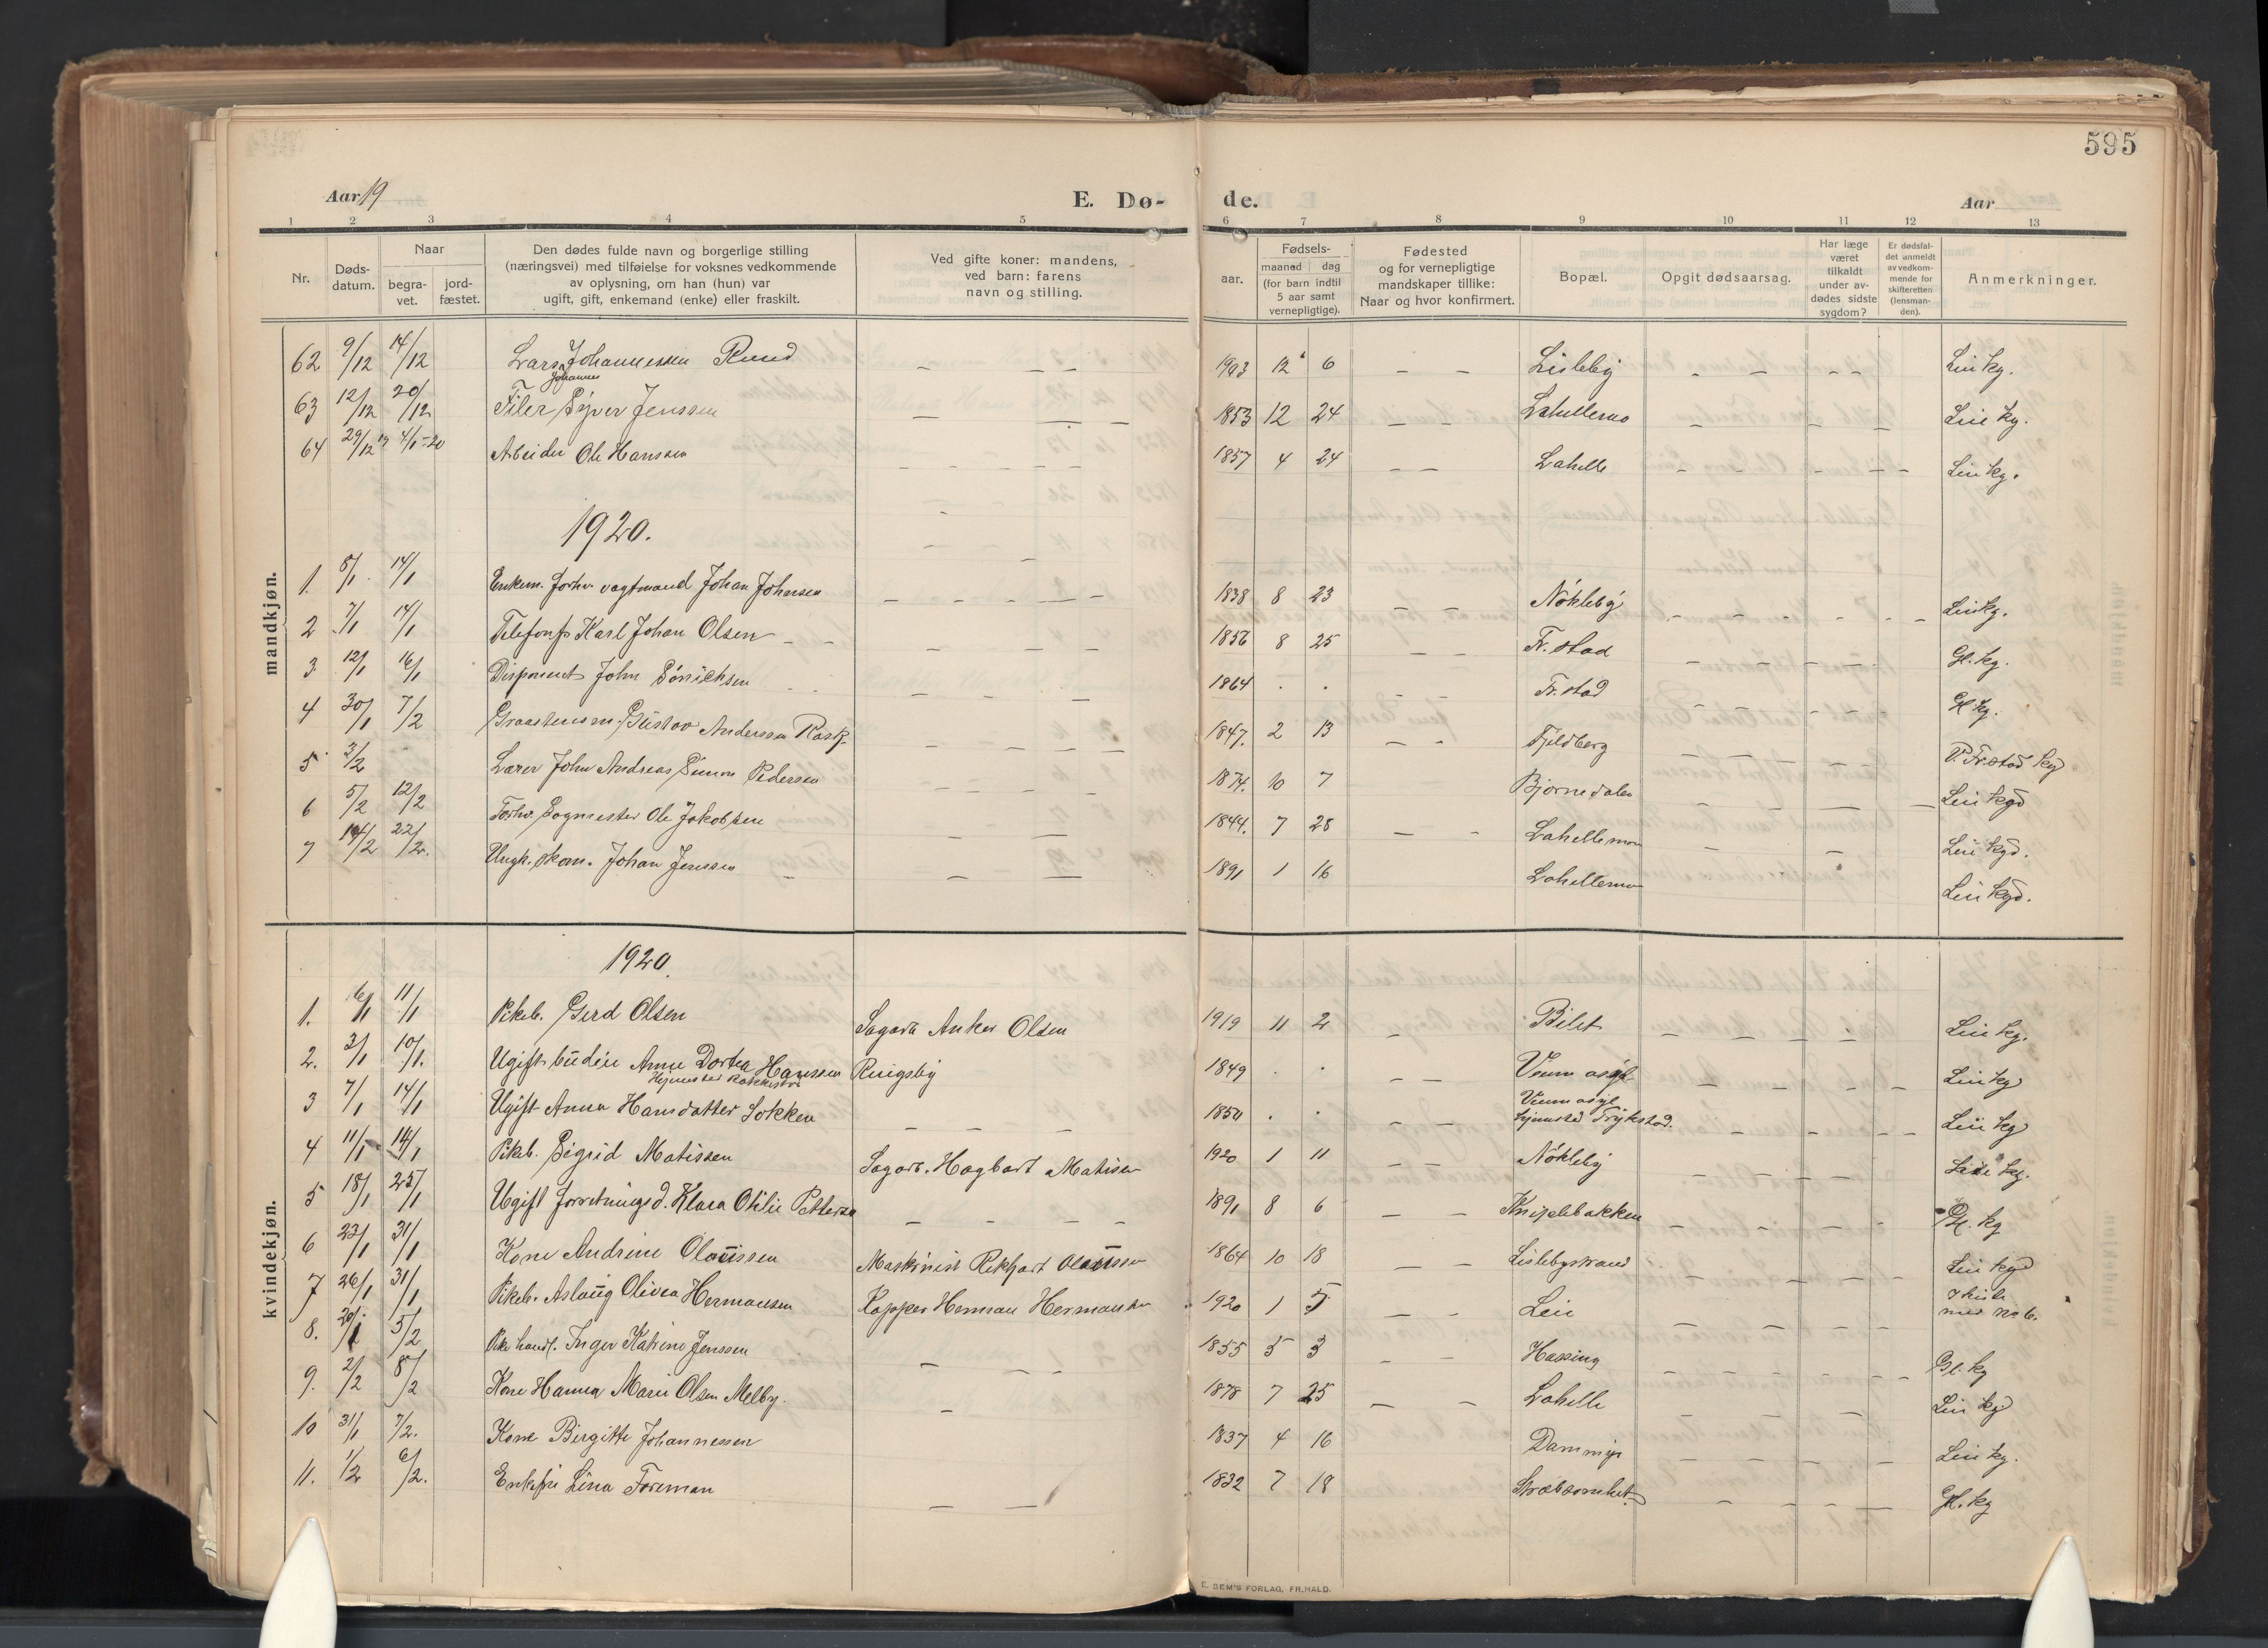 595
Aar 19
E. Dø-
de.
Aar
1 2 3 4 5 6 7 8 9 10 11 12 13
Nr.
Døds-
datum.
Naar
begra-
vet.
jord-
fæstet.
Den dødes fulde navn og borgerlige stilling
(næringsvei) med tilføielse for voksnes vedkommende
av oplysning, om han (hun) var
ugift, gift, enkemand (enke) eller fraskilt.
Ved gifte koner: mandens,
ved barn: farens
navn og stilling.
aar.
Fødsels-
maaned dag
(for barn indtil
5 aar samt
vernepligtige).
Fødested
og for vernepligtige
mandskaper tillike:
Naar og hvor konfirmert.
Bopæl.
Opgit dødsaarsag.
Har læge
været
tilkaldt
under av-
dødes sidste
sygdom?
Er dødsfal-
det anmeldt
av vedkom-
mende for
skifteretten
(lensman-
den).
Anmerkninger.
mandkjøn.
62 9/12 14/12 Lars Johannessen Ruud — — — 1903 12 6 — — Lisleby — — — — Leie kg.
Johannes
63 12/12 20/12 Filer Syver Jenssen — — — 1853 12 24 — — Lahellemo — — — — Leie kg.
64 29/12 19 4/1-20 Arbeider Ole Hanssen — — — 1857 4 24 — — Lahelle — — — — Leie kg.
1920.
1. 8/1 14/1 Enkem. Forhv. vagtmand Johan Johnsen — — — 1838 8 23 — — Nökleby — — — — Leie kg.
2 7/1 14/1 Telefonf. Karl Johan Olsen — — 1856 8 25 — — Fr. stad — — — — Gl. kg.
3. 12/1 16/1 Disponent John Sönichsen — — — 1864 . . — — Fr. stad — — — Gl kg.
4 30/1 7/2 Graastensm. Gustav Anderssen Rask — — — 1847. 2 13 — — Fjeldberg — — — V. Fr.stad kg
5 3/2 Lærer John Andreas Simon Pedersen — — — 1874. 10 7 Bjørnedalen — — — — Leie kgd
6 5/2 12/2 Forhv. Sogmester Ole Jakobsen — — — 1844. 7 28 — — Lahellemo — — Leie kgd.
7 14/2 22/2. Ungk. skom. Johan Jenssen — — — 1891 1 16 Lahellemo Leie kgd.
kvindekjøn.
1920.
1. 6/1 11/1 Pikeb. Gerd Olsen Sagarb. Anker Olsen 1919 11 2 — Bilet — — — — Leie kg.
2. 3/1 10/1. Ugift budeie Anne Dortea Hanssen Ringsby 1849 . . — — Veum asyl — — — — Leie kg
Hjemsted Rakkestad
3 7/1 14/1 Ugift Anna Hansdatter Løkken — — — 1850 . . — — Veum asyl
hjemsted Trykstad. — — — — Leie kg
4 11/1 14/1 Pikeb. Sigrid Matissen Sagarb. Hagbart Matisen 1920 1 11 — — Nökleby — — — — Leie kg.
5 18/1 25/1 Ugift forretningsd. Klara Otilie Pettersen — — — — 1891 8 6 — — Knipelebakken — — — — Gl. kg
6 23/1 31/1 Kone Andrine Olaussen Maskinist Rikhart Olaussen 1864 10 18 — — Lislebystrand — — — — Leie kgd
7 26/1 31/1 Pikeb. Aslaug Olivea Hermansen Kapper Herman Hermansen 1920 1 5 — — Leie — — — —
med no 6.
8. 5/2 Pike handl. Inger Katrine Jenssen — — — 1855 5 3 — — Hassing — — — — Gl. kg
9. 2/2 8/2 Kone Hanna Marie Olsen Melby. — 1878 7 25 — — Lahelle — — — — Leie kg
10 31/1 7/2. Kone Birgitte Johannessen 1837 4 16 Dammyr — — — — Leie kg.
11. 1/2 6/2. Enkefru Lina Foreman — — 1832 7 18 Stræbsomhet — — — — Gl. kg
E. SEM'S FORLAG, FR.HALD.